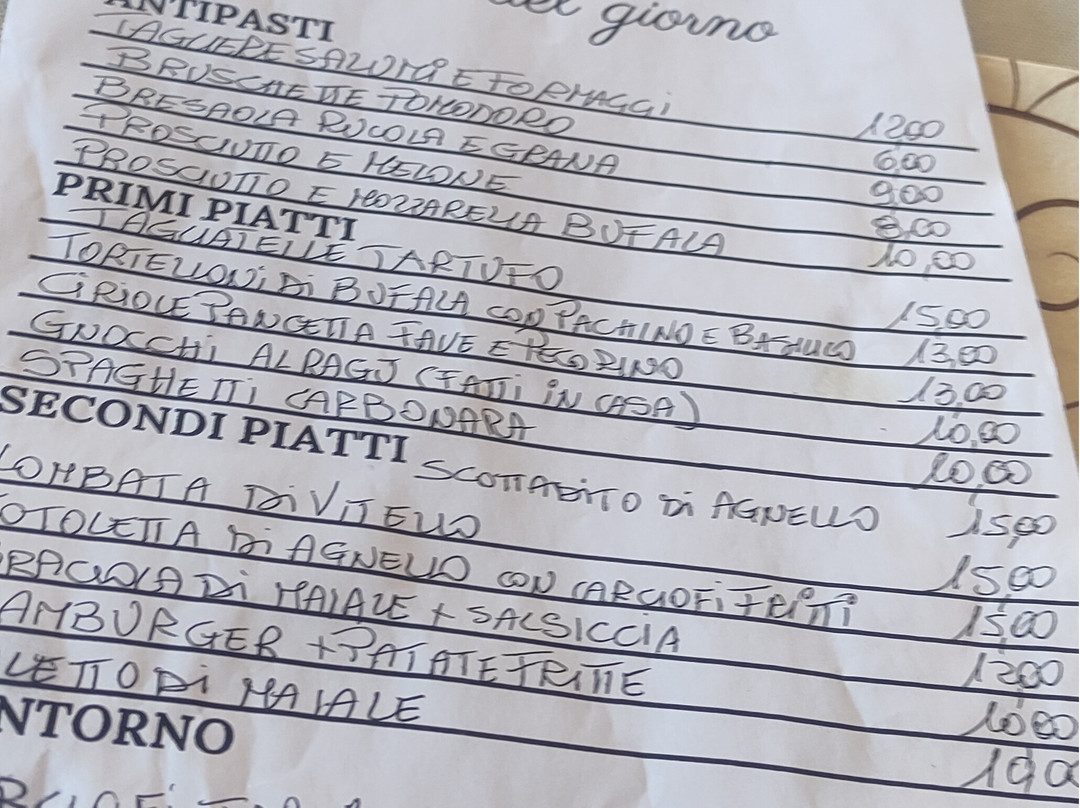 del giorno
ANTIPASTI
TAGLIERE SALUMI E FORMAGGI 12,00
BRUSCHETTE POMODORO 6,00
BRESAOLA RUCOLA E GRANA 9,00
PROSCIUTTO E MELONE 8,00
PROSCIUTTO E MOZZARELLA BUFALA 10,00
PRIMI PIATTI
TAGLIATELLE TARTUFO 15,00
TORTELLONI DI BUFALA CON PACHINO E BASILICO 13,00
CIRIOLE PANCETTA FAVE E PECORINO 13,00
GNOCCHI AL RAGÙ (FATTI IN CASA) 10,00
SPAGHETTI CARBONARA 10,00
SECONDI PIATTI SCOTTADITO DI AGNELLO 15,00
LOMBATA DI VITELLO 15,00
COTOLETTA DI AGNELLO CON CARCIOFI FRITTI 15,00
BRACIOLA DI MAIALE + SALSICCIA 12,00
AMBURGER + PATATE FRITTE 10,00
LETTO DI MAIALE
NTORNO